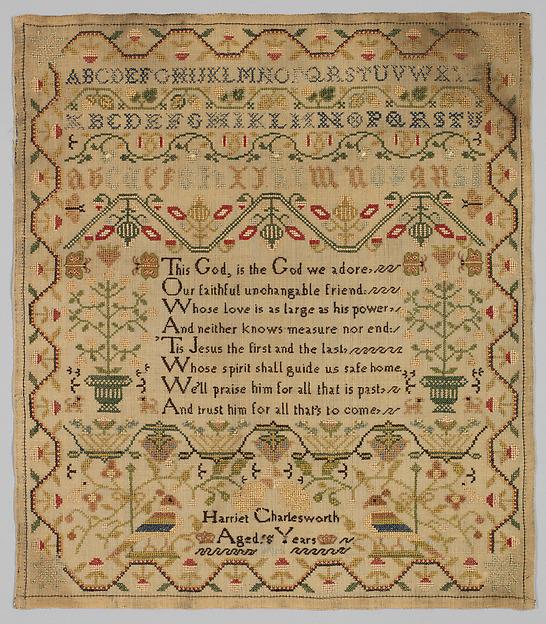 ABCDEFGHIJKLMNOPQRSTUVWXYZ
ABCDEFGHIKLMNOPQRSTU
This God, is the God we adore
Our faithful unchangable friend
Whose love is as large as his power
And neither knows measure nor end
'Tis Jesus the first and the last
Whose spirit shall guide us safe home
We'll praise him for all that is past
And trust him for all that's to come
Harriet Charlesworth
Aged 8 Years